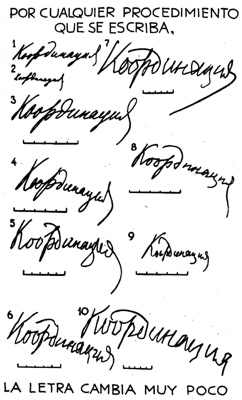 POR CUALQUIER PROCEDIMIENTO
QUE SE ESCRIBA,
1 Координация
7 Координация
2
3 Координация
8 Координация
4 Координация
5 Координация
9 Координация
6 Координация
10 Координация
LA LETRA CAMBIA MUY POCO